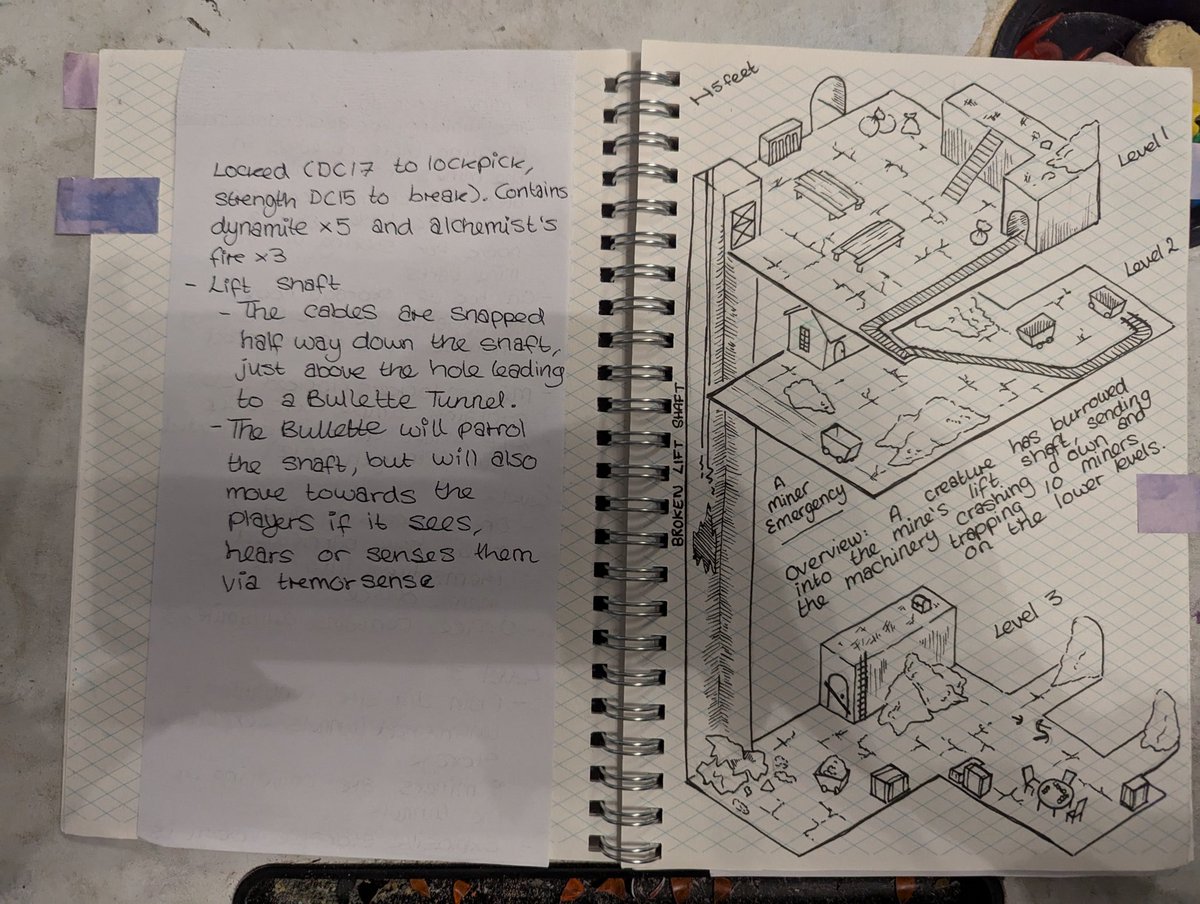 Locked (DC17 to lockpick,
strength DC15 to break). Contains
dynamite x5 and alchemist's
fire x3
- Lift shaft
- The cables are snapped
half way down the shaft,
just above the hole leading
to a Bullette Tunnel.
- The Bullette will patrol
the shaft, but will also
move towards the
players if it sees,
hears or senses them
via tremorsense
5 feet
Level 1
Level 2
BROKEN LIFT SHAFT
A
miner
Emergency
Overview: A creature has burrowed
into the mine's lift shaft, sending
the machinery crashing down and
trapping 10 miners
on the lower levels.
Level 3